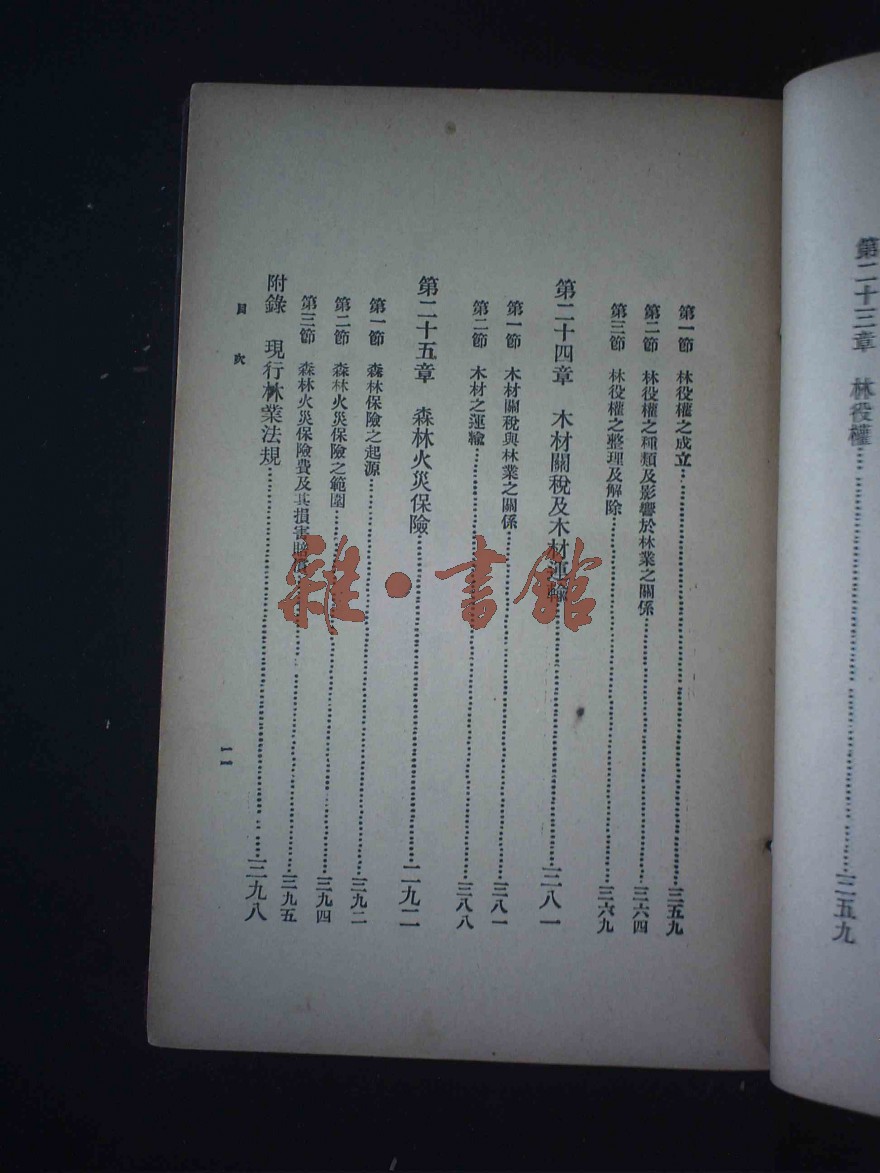 第二十三章　林役權……三五九
第一節　林役權之成立……三五九
第二節　林役權之種類及影響於林業之關係……三六四
第三節　林役權之整理及解除……三六九
第二十四章　木材關稅及木材運輸……三八一
第一節　木材關稅與林業之關係……三八一
第二節　木材之運輸……三八八
第二十五章　森林火災保險……三九二
第一節　森林保險之起源……三九二
第二節　森林火災保險之範圍……三九四
第三節　森林火災保險費及其損害賠償……三九五
附錄　現行林業法規……三九八
目次
一一
雜·書館